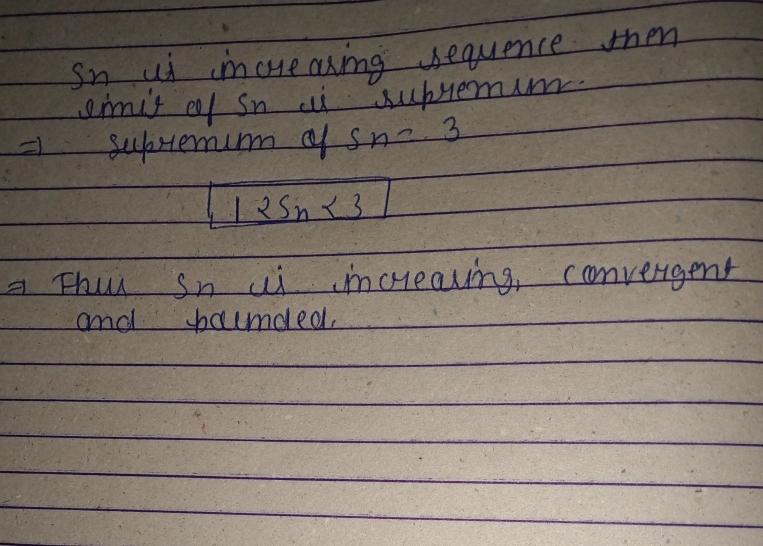 Sn is increasing sequence then
limit of Sn is supremum.
⇒ supremum of Sn = 3
1 < Sn < 3
⇒ Thus Sn is increasing, convergent
and bounded.